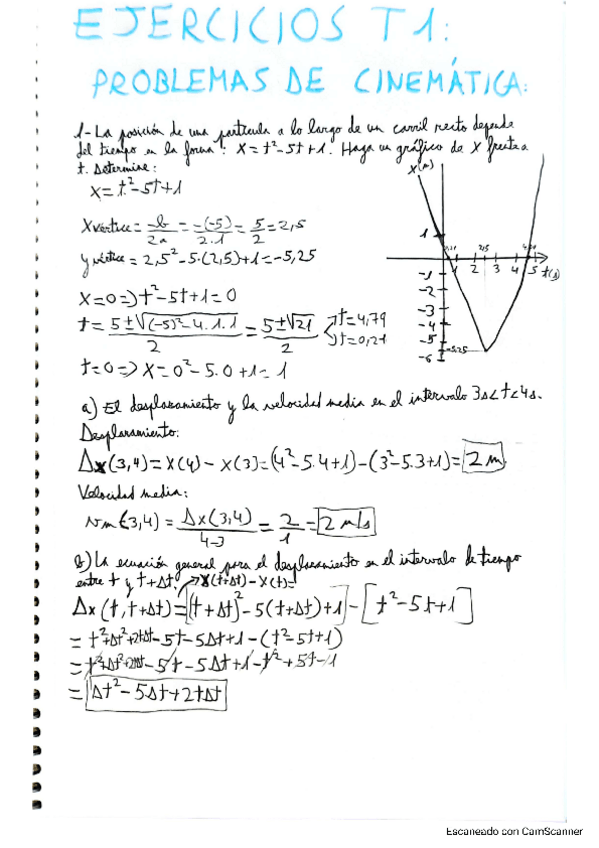 EJERCICIOS T1:
PROBLEMAS DE CINEMÁTICA:
1- La posición de una partícula a lo largo de un carril recto depende
del tiempo en la forma: X = t²-5t+1. Haga un gráfico de X frente a
t. Determine:
X = t²-5t+1
Xvértice = -b/2a = -(-5)/2·1 = 5/2 = 2,5
yvértice = 2,5²-5·(2,5)+1 = -5,25
X=0 => t²-5t+1=0
t = 5±√(-5)²-4·1·1/2 = 5±√21/2 t=4,79
t=0,21
t=0 => X = 0²-5·0+1 = 1
X(m)
1
0,21 2,5 4,79
1 2 3 4 5 t(s)
-1
-2
-3
-4
-5
-5,25
-6
a) El desplazamiento y la velocidad media en el intervalo 3s<t<4s.
Desplazamiento:
Δx(3,4) = X(4) - X(3) = (4²-5·4+1)-(3²-5·3+1) = 2 m
Velocidad media:
Vm(3,4) = Δx(3,4)/4-3 = 2/1 = 2 m/s
b) La ecuación general para el desplazamiento en el intervalo de tiempo
entre t y t+Δt. X(t+Δt) - X(t)=
Δx(t,t+Δt) = [(t+Δt)²-5(t+Δt)+1] - [t²-5t+1]
= t²+Δt²+2tΔt-5t-5Δt+1-(t²-5t+1)
= t²+Δt²+2tΔt-5t-5Δt+1-t²+5t-1
= Δt²-5Δt+2tΔt
Escaneado con CamScanner